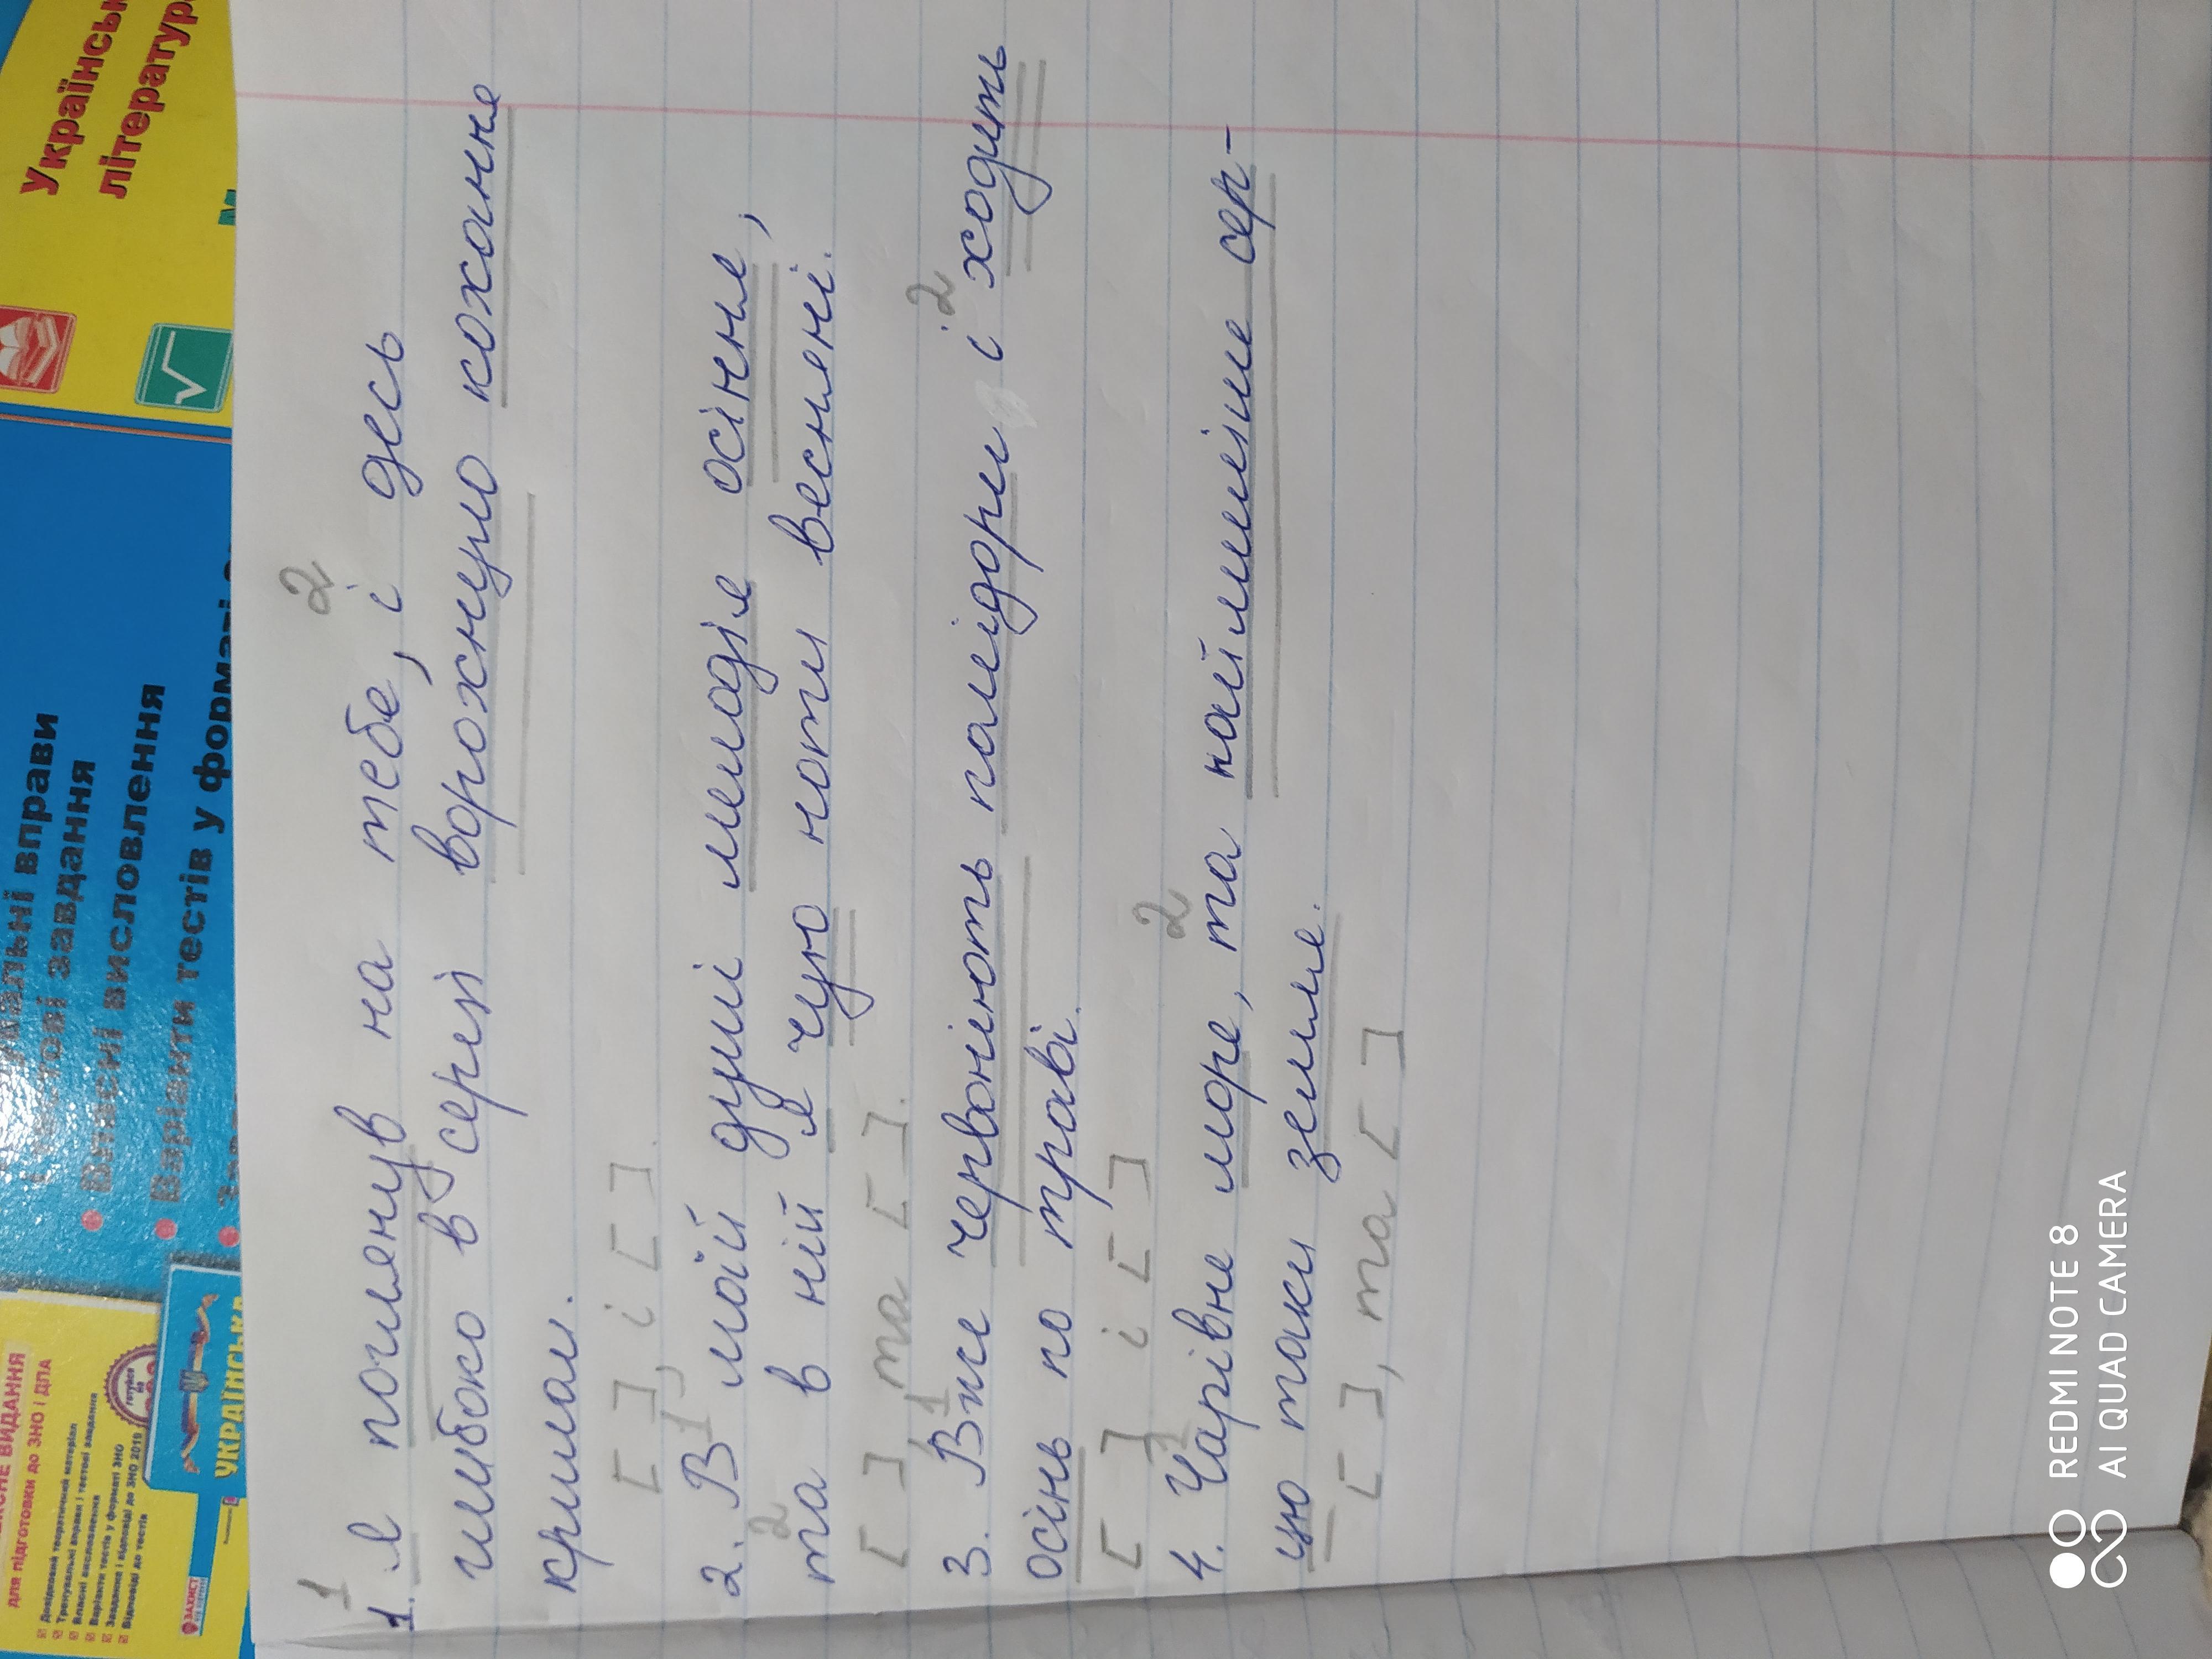 Українськ
літератур
альні вправи
тові завдання
Власні висловлення
Варіанти тестів у форматі
ДЛЯ ПІДГОТОВКИ ДО ЗНО І ДПА
Довідковий теоретичний матеріал
Тренувальні вправи і тестові завдання
Власні висловлення
Варіанти тестів у форматі ЗНО
Завдання і відповіді до ЗНО 2019
Відповіді до тестів
УКРАЇНСЬК
1 2
1. Я поглянув на тебе, і десь
глибоко в серці ворохнуло кохання
крилом.
[ ], і [ ].
1
2. В моїй душі мелодія осіння,
2
та в ній я чуюноти весняні.
[ ], та [ ].
1 2
3. Вже червоніють помідори і ходить
осінь по траві.
[ ] і [ ]
1 2
4. Чарівне море, та наймиліше сер-
цю таки земля.
[ ], та [ ]
REDMI NOTE 8
AI QUAD CAMERA